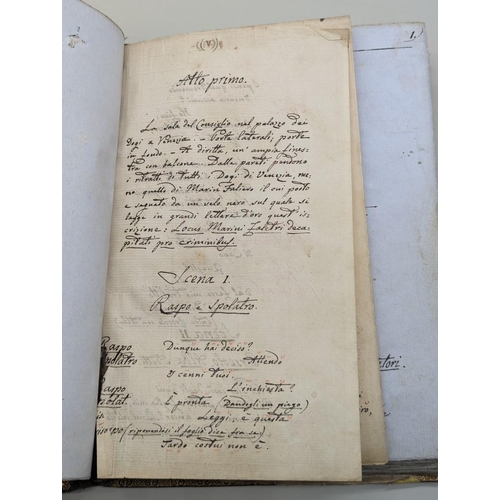 1.
Atto primo.
La sala del Consiglio nel palazzo dei
Dogi a Venezia. - Porte laterali; porte
in fondo. - A diritta, un' ampia fines-
tra con balcone. Dalle pareti pendono
i ritratti di tutti i Dogi di Venezia, me-
no quello di Marin Faliero il cui posto
è segnato da un velo nero sul quale si
legge in grandi lettere d'oro quest' is-
crizione: Locus Marini Faletri deca-
pitati pro criminibus.
Scena 1.
Raspo e Spolatro.
Raspo Dunque hai deciso?
Spolatro Attendo
I cenni tuoi.
Raspo L'inchiesta?
Spolat. È pronta (Dandogli un piego)
Leggi: è questa
Raspo (riponendosi il foglio dice fra se)
Tardo costui non è.